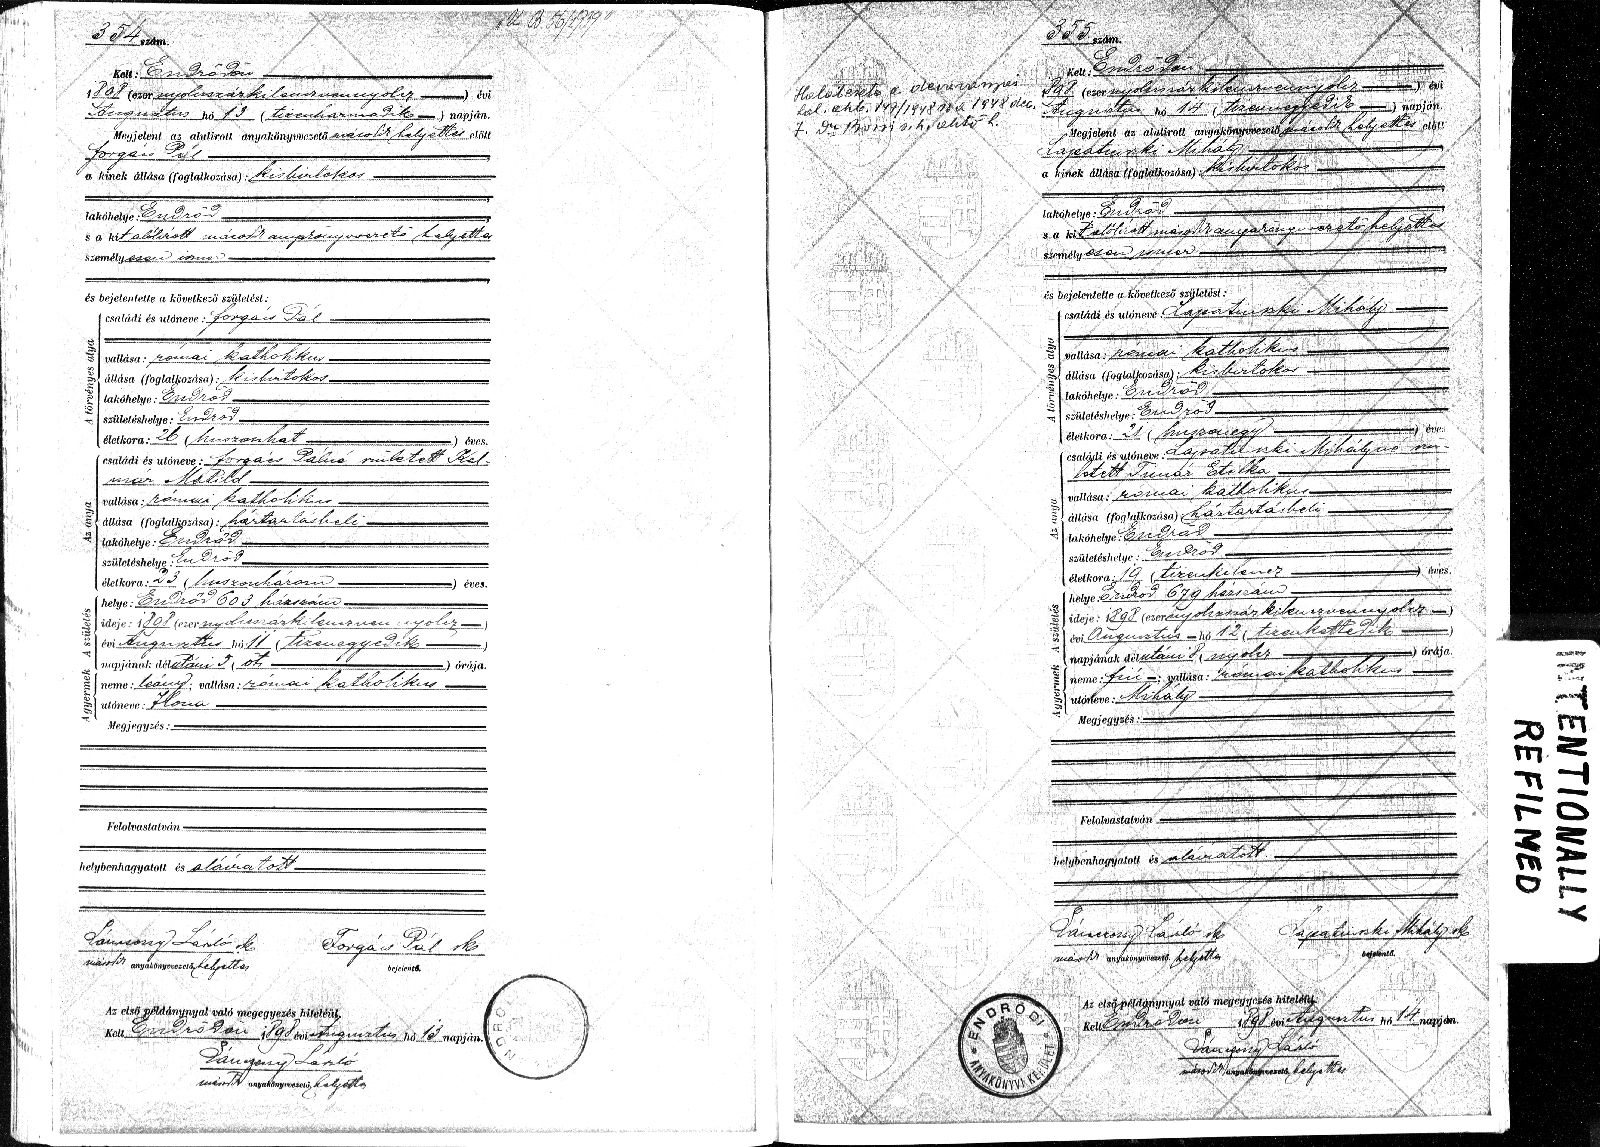 354 szám.
Kelt: Endrődön
1898 (ezer nyolcszázkilencvennyolcz) évi
Augusztus hó 13 (tizenharmadik) napján.
Megjelent az alulirott anyakönyvvezető másodk helyettes előtt
Forgács Pál
a kinek állása (foglalkozása): kisbirtokos
lakóhelye: Endrőd
s a kit alólirott másodk anyakönyvvezető helyettes
személyesen ismer
és bejelentette a következő születést:
A törvényes atya
családi és utóneve: Forgács Pál
vallása: római katholikus
állása (foglalkozása): kisbirtokos
lakóhelye: Endrőd
születéshelye: Endrőd
életkora: 26 (huszonhat) éves.
Az anya
családi és utóneve: Forgács Pálné született Kal-
már Matild
vallása: római katholikus
állása (foglalkozása): háztartásbeli
lakóhelye: Endrőd
születéshelye: Endrőd
életkora: 23 (huszonhárom) éves.
A születés
helye: Endrőd 603 házszám
ideje: 1898 (ezer nyolczszázkilenczven nyolcz)
évi Augusztus hó 11 (tizenegyedik)
napjának délutáni 5 (öt) órája.
A gyermek
neme: leány; vallása: római katholikus
utóneve: Ilona
Megjegyzés:
Felolvastatván
helybenhagyatott és aláiratott
László sk
Forgács Pál sk
másodk anyakönyvvezető helyettes
bejelentő.
Az első példánynyal való megegyezés hiteléül.
Kelt Endrődön 1898 évi Augusztus hó 13 napján.
László
másodk anyakönyvvezető helyettes
355 szám.
Kelt: Endrődön
1898 (ezer nyolczszázkilenczvennyolcz) évi
Augusztus hó 14 (tizennegyedik) napján.
Megjelent az alulirott anyakönyvvezető másodk helyettes előtt
Lapatinszki Mihály
a kinek állása (foglalkozása): kisbirtokos
lakóhelye: Endrőd
s a kit alólirott másodk anyakönyvvezető helyettes
személyesen ismer
Halálesete a dévaványai
hal. akb. 149/1948 1948 dec.
7. Dr
és bejelentette a következő születést:
A törvényes atya
családi és utóneve: Lapatinszki Mihály
vallása: római katholikus
állása (foglalkozása): kisbirtokos
lakóhelye: Endrőd
születéshelye: Endrőd
életkora: 21 (huszonegy) éves.
Az anya
családi és utóneve: Lapatinszki Mihályné szü-
letett Timár Etelka
vallása: római katholikus
állása (foglalkozása): háztartásbeli
lakóhelye: Endrőd
születéshelye: Endrőd
életkora: 19 (tizenkilencz) éves.
A születés
helye: Endrőd 679 házszám
ideje: 1898 (ezer nyolczszázkilenczvennyolcz)
évi Augusztus hó 12 (tizenkettedik)
napjának délutáni 8 (nyolcz) órája.
A gyermek
neme: fiú; vallása: római katholikus
utóneve: Mihály
Megjegyzés:
Felolvastatván
helybenhagyatott és aláiratott.
László sk
Lapatinszki Mihály sk
másodk anyakönyvvezető helyettes
bejelentő.
Az első példánynyal való megegyezés hiteléül.
Kelt Endrődön 1898 évi Augusztus hó 14 napján.
László
másodk anyakönyvvezető helyettes
ENDRŐDI
ANYAKÖNYVI KERÜLET
INTENTIONALLY
REFILMED